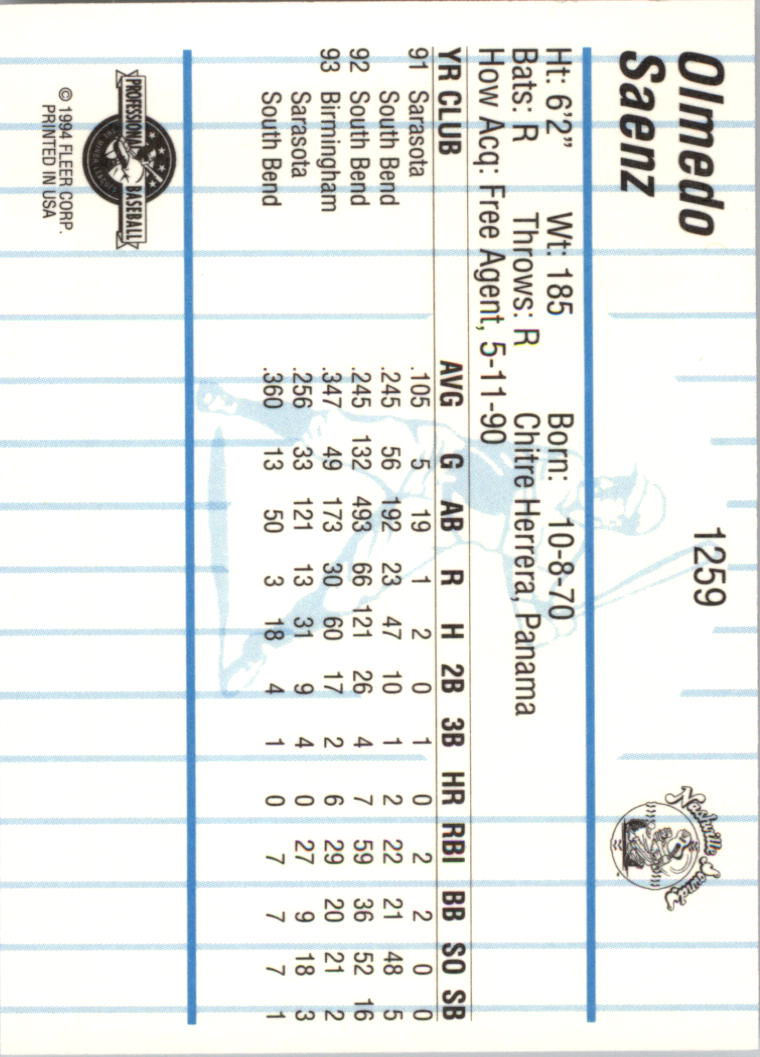 Olmedo 1259 Nashville Sounds
Saenz
Ht: 6'2" Wt: 185 Born: 10-8-70
Bats: R Throws: R Chitre Herrera, Panama
How Acq: Free Agent, 5-11-90
YR CLUB AVG G AB R H 2B 3B HR RBI BB SO SB
91 Sarasota .105 5 19 1 2 0 1 0 2 2 0 0
South Bend .245 56 192 23 47 10 1 2 22 21 48 5
92 South Bend .245 132 493 66 121 26 4 7 59 36 52 16
93 Birmingham .347 49 173 30 60 17 2 6 29 20 21 2
Sarasota .256 33 121 13 31 9 4 0 27 9 18 3
South Bend .360 13 50 3 18 4 1 0 7 7 7 1
PROFESSIONAL BASEBALL
© 1994 FLEER CORP.
PRINTED IN USA